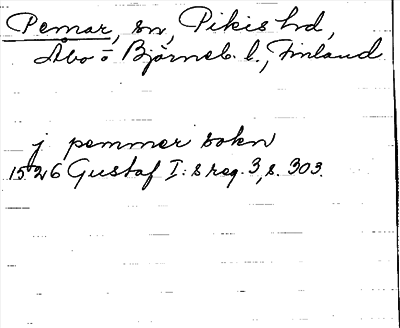 Pemar, sn, Pikis hd,
Åbo o Björneb. l., Finland
j pemmer sokn
1526 Gustaf I:s reg. 3, s. 303.